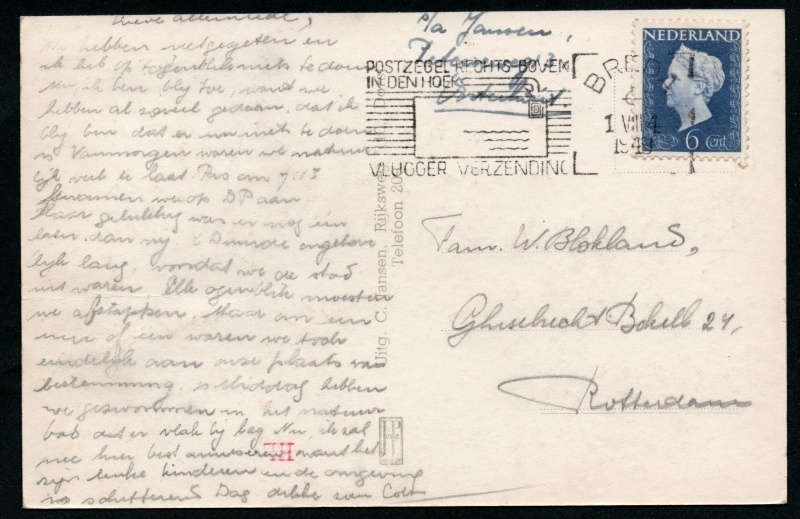 Lieve allemaal,
We hebben net gegeten en
ik heb op 't ogenblik niets te doen
Nu, ik ben blij toe, want we
hebben al zoveel gedaan, dat ik
blij ben dat er nu niets te doen
is Vanmorgen waren we natuur
lijk veel te laat. Pas om 7.13
kwamen we op DP aan
Maar gelukkig was er nog één
later. dan nij 't Duurde ongelove
lijk lang, voordat we de stad
uit waren. Elk ogenblik moesten
we afstappen. Maar om een
uur of één waren we toch
eindelijk aan onze plaats van
bestemming. 's Middag hebben
we gezwommen in het natuur
bad dat er vlak bij leg Nu, ik zal
me hier best amuseren want het
zijn leuke kinderen en de omgeving
is schitterend Dag dikke zoen Cob
p/a Jansen,
Oosterhout
POSTZEGEL RECHTS BOVEN
IN DEN HOEK
VLUGGER VERZENDING
BRE
1 VIII 4
1949
NEDERLAND
6 cent
Uitg. C. Jansen, Rijksweg
Telefoon 20
Fam. W. Blokland,
Ghijsebrecht Bokelb 24,
Rotterdam